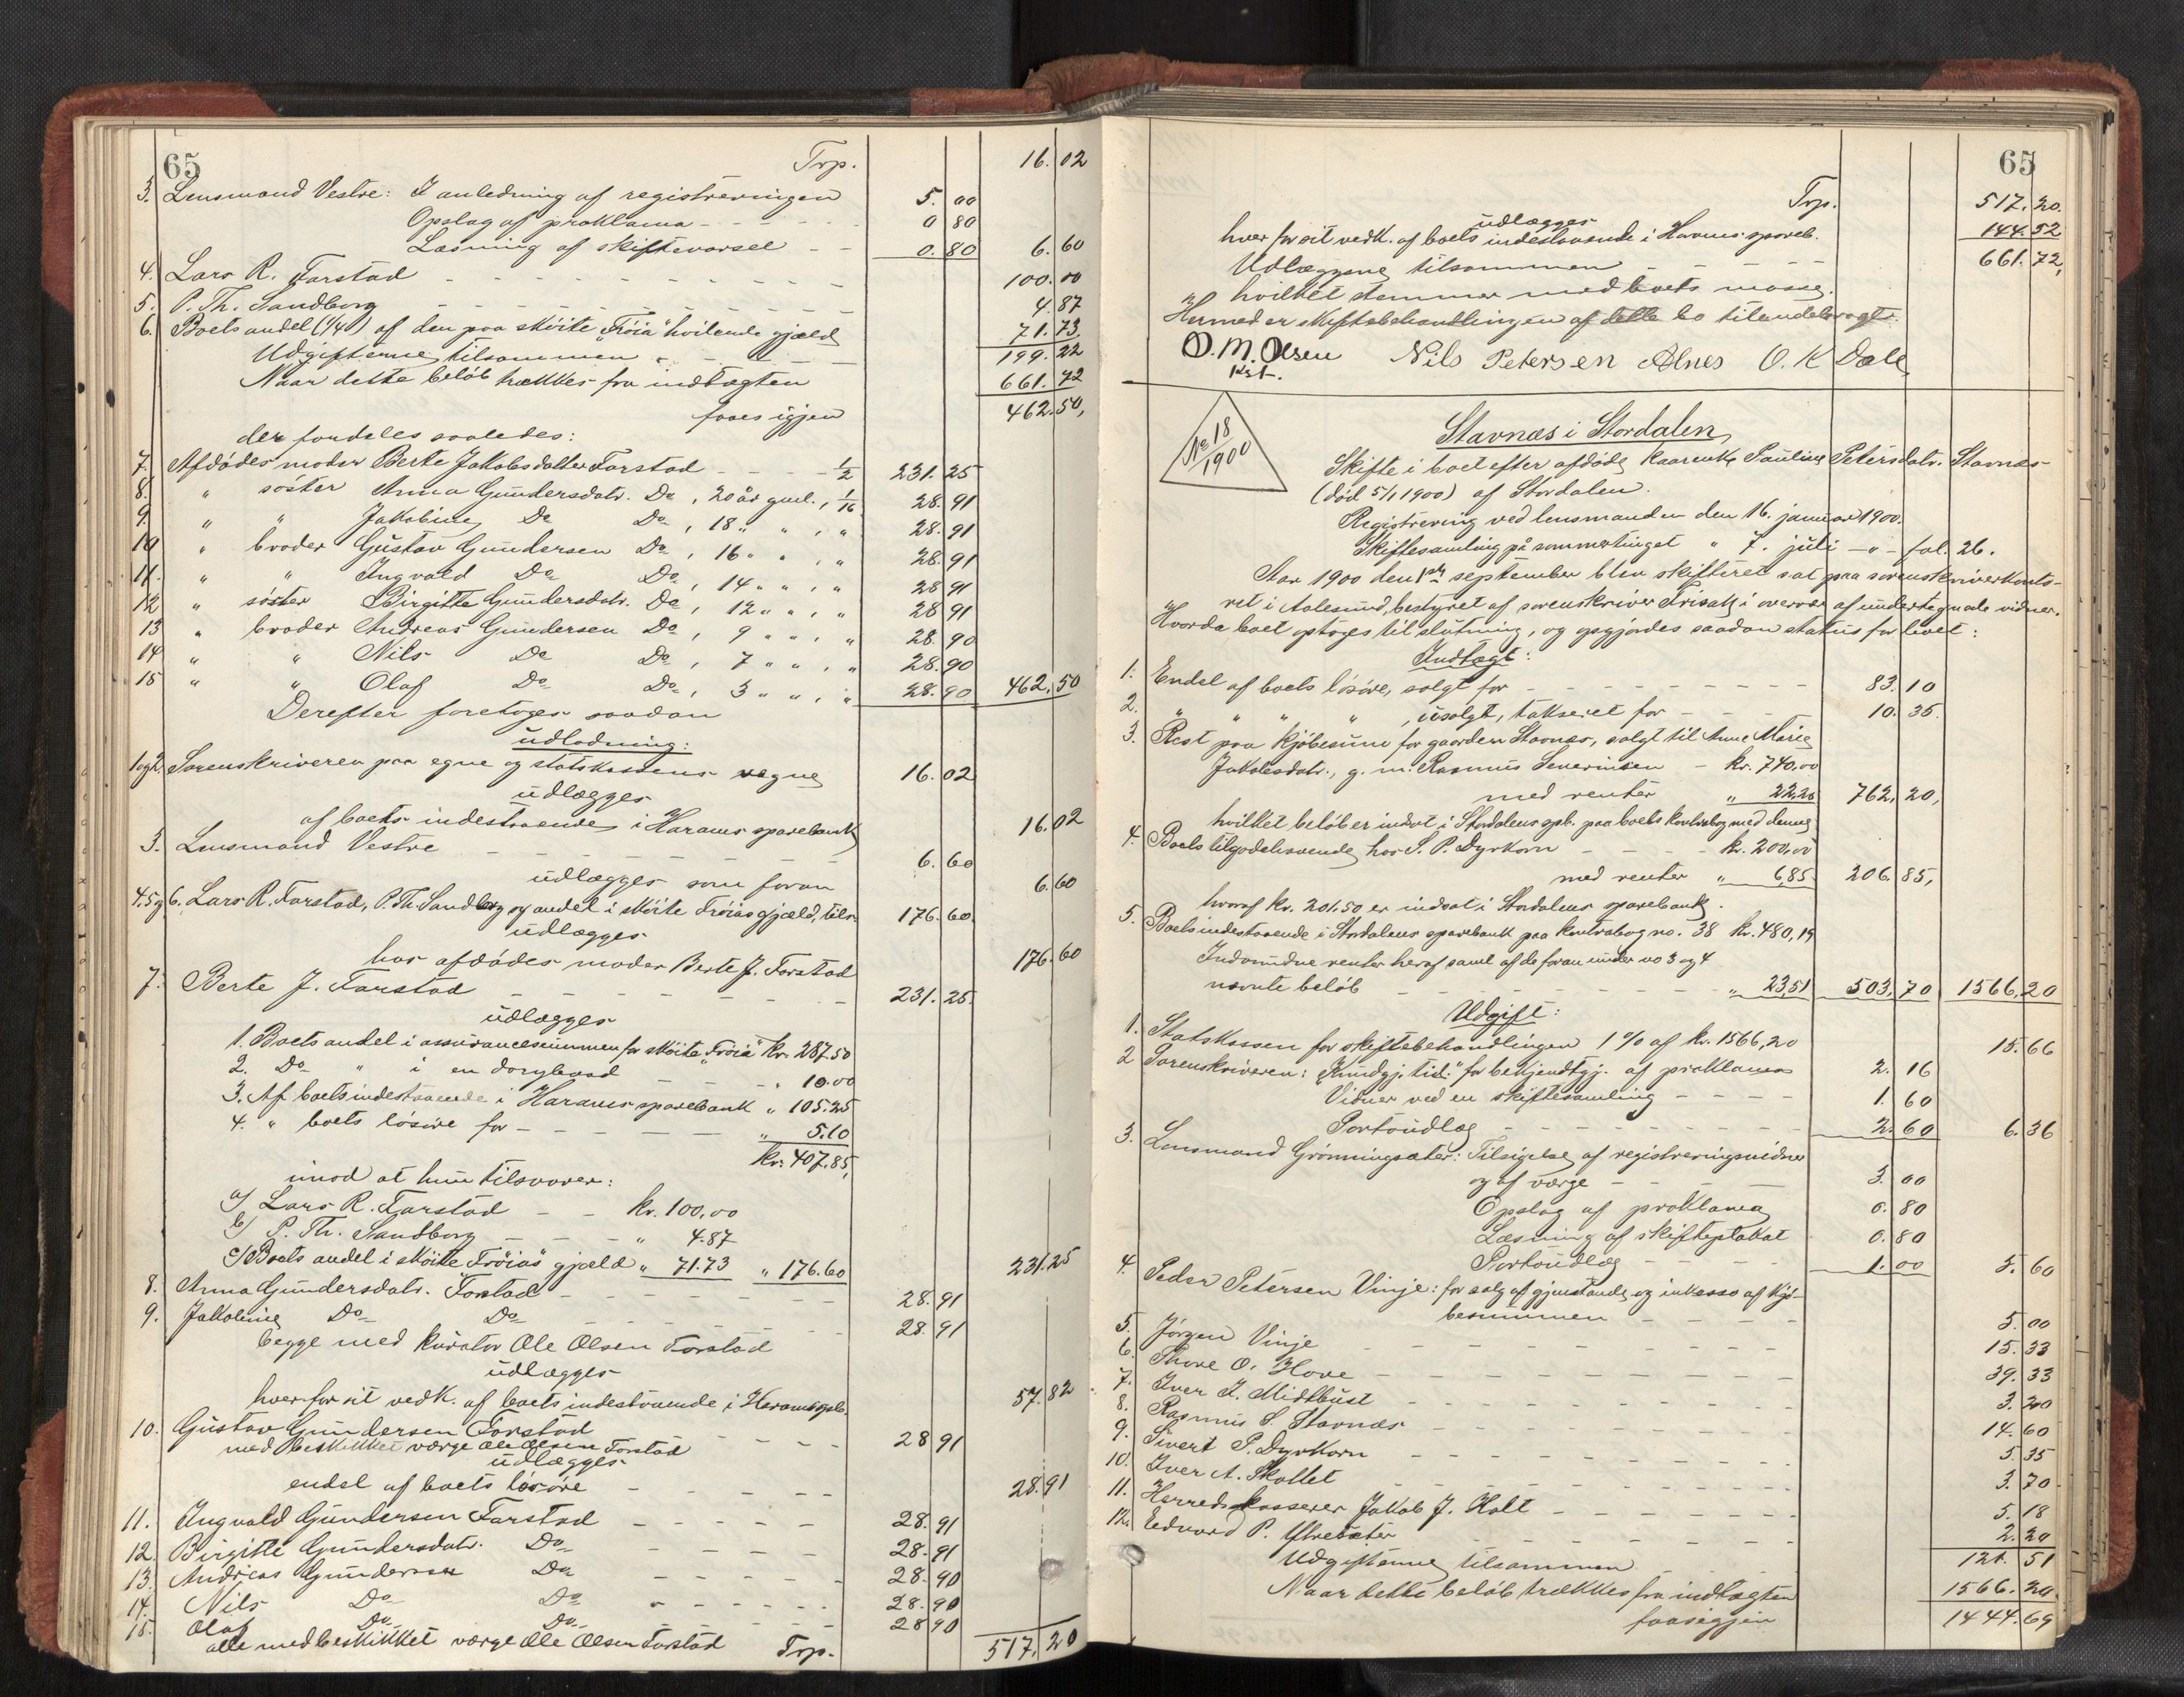 65
Trp. 16.02
3. Lensmand Vestre: I anledning af registreringen 5.00
Opslag af proklama 0 80
Læsning af skiftevarsel 0.80 6.60
4. Lars R. Farstad 100.00
5. P. Th. Sandborg 4.87
6. Boets andel (1/4) af den paa skøite "Frøia" hvilende gjæld 71.73
Udgifterne tilsammen 199.22
Naar dette beløb trækkes fra indtægten 661.72
faaes igjen 462.50,
der fordeles saaledes:
7. Afdødes moder Berte Jakobsdatter Farstad 1/2 231.25
8. " søster Anna Gundersdatr. Do, 20 år gml., 1/16 28.91
9. " " Jakobine Do Do, 18 " " , " 28.91
10 " broder Gustav Gundersen Do, 16 " " , " 28.91
11. " " Ingvald Do Do, 14 " " , " 28 91
12 " søster Birgitte Gundersdatr. Do, 12 " " , " 28 91
13 " broder Andreas Gundersen Do, 9 " " , " 28.90
14 " " Nils Do Do, 7 " " , " 28.90
15 " " Olaf Do Do, 3 " " , " 28.90 462.50
Derefter foretoges saadan
udlodning:
1 og 2. Sorenskriveren paa egne og statskassens vegne 16.02
udlægges
af boets indestaaende i Harams sparebank 16.02
3. Lensmand Vestre 6.60
udlægges som foran 6.60
4.5 og 6. Lars R. Farstad, P. Th. Sandborg og andel i skøite Frøias gjæld, tils. 176.60
udlægges
hos afdødes moder Berte J. Farstad 176.60
7. Berte J. Farstad 231.25.
udlægges
1. Boets andel i assurancesummen for skøite "Frøia" kr. 287.50
2. Do " i en dorybaad " 10.00
3. Af boets indestaaende i Harams sparebank " 105.25
4. " boets løsøre for " 5.10
kr. 407.85,
imod at hun tilsvarer:
a) Lars R. Farstad kr. 100,00
b) P. Th. Sandborg " 4.87
c) Boets andel i skøite "Frøias" gjæld " 71.73 " 176.60 231.25
8. Anna Gundersdatr. Farstad 28.91
9. Jakobine Do Do 28.91
begge med kurator Ole Olsen Farstad
udlægges
hver for sit vedk. af boets indestaaende i Harams spb. 57.82
10. Gustav Gundersen Farstad 28 91
med beskikket værge Ole Olsen Farstad
udlægges
endel af boets løsøre 28.91
11. Ingvald Gundersen Farstad 28.91
12. Birgitte Gundersdatr. Do 28.91
13. Andreas Gundersen Do 28.90
14. Nils Do Do 28.90
15. Olaf Do Do 28 90
alle med beskikket værge Ole Olsen Farstad Trp. 517.20
65
Trp. 517.20.
udlægges
hver for sit vedk. af boets indestaaende i Harams spareb. 144.52
Udlæggene tilsammen 661.72,
hvilket stemmer med boets masse.
Hermed er skiftebehandlingen af dette bo tilendebragt.
O. M. Olsen Nils Petersen Alnes O. K Dale
kst.
No 18
1900
Stavnæs i Stordalen
Skifte i boet efter afdøde kaarenke Pauline Petersdatr. Stavnæs
(død 5/1 1900) af Stordalen.
Registrering ved lensmanden den 16. januar 1900.
Skiftesamling på sommertinget " 7. juli — " — fol. 26.
Aar 1900 den 1ste september blev skifteret sat paa sorenskriverkonto-
ret i Aalesund, bestyret af sorenskriver Frisak i overvær af undertegnede vidner.
Hvorda boet optoges til slutning, og opgjordes saadan status for boet:
Indtægt:
1. Endel af boets løsøre, solgt for 83.10
2. " " " " , usolgt, takseret for 10.35.
3. Rest paa kjøbesum for gaarden Stavnæs, solgt til Anne Marie
Jakobsdatr., g. m. Rasmus Severinsen kr. 740,00
med renter " 22,20 762,20,
hvilket beløb er indsat i Stordalens spb. paa boets kontrabog med denne
4. Boets tilgodehavende hos S. P. Dyrkorn kr. 200,00
med renter " 6,85 206.85,
hvoraf kr. 201.50 er indsat i Stordalens sparebank.
5. Boets indestaaende i Stordalens sparebank paa kontrabog no. 38 kr. 480,19
Indvundne renter heraf samt af de foran under no 3 og 4
nævnte beløb " 23,51 503,70 1566,20
Udgift:
1. Statskassen for skiftebehandlingen 1 % af kr. 1566,20 15.66
2 Sorenskriveren: "Kundgj. tid." for bekjendtgj. af proklama 2.16
Vidner ved en skiftesamling 1.60
Portoudlæg 2.60 6.36
3. Lensmand Grønningsæter: Tilsigelse af registreringsvidner
og af værge 3.00
Opslag af proklama 0.80
Læsning af skifteplakat 0.80
Portoudlæg 1.00 5.60
4. Peder Petersen Vinje: for salg af gjenstande og inkasso af kjø-
besummen 5.00
5. Jørgen Vinje 15.33
6. Thore O. Hove 39.33
7. Iver I. Midtbust 3.20
8. Rasmus S. Stavnæs 14.60
9. Sivert P. Dyrkorn 5.35
10. Iver A. Skotlet 3.70
11. Herredskasserer Jakob J. Holt 5.18
12. Edvard P. Ytresæter 2.20
Udgifterne tilsammen 121.51
Naar dette beløb trækkes fra indtægten 1566.20
faaes igjen 1444.69